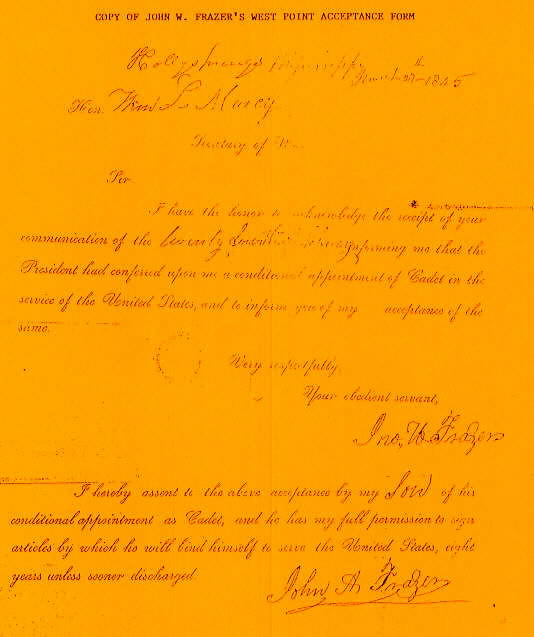 COPY OF JOHN W. FRAZER'S WEST POINT ACCEPTANCE FORM
Hollysprings Mississippi
27th 1845
Hon. Wm L. Marcy
Secretary of War
Sir
I have the honor to acknowledge the receipt of your
communication of the twenty informing me that the
President had conferred upon me a conditional appointment of Cadet in the
service of the United States, and to inform you of my acceptance of the
same.
Very respectfully,
Your obedient servant,
Jno. W. Frazer
I hereby assent to the above acceptance by my Son of his
conditional appointment as Cadet, and he has my full permission to sign
articles by which he will bind himself to serve the United States, eight
years unless sooner discharged.
John A. Frazer